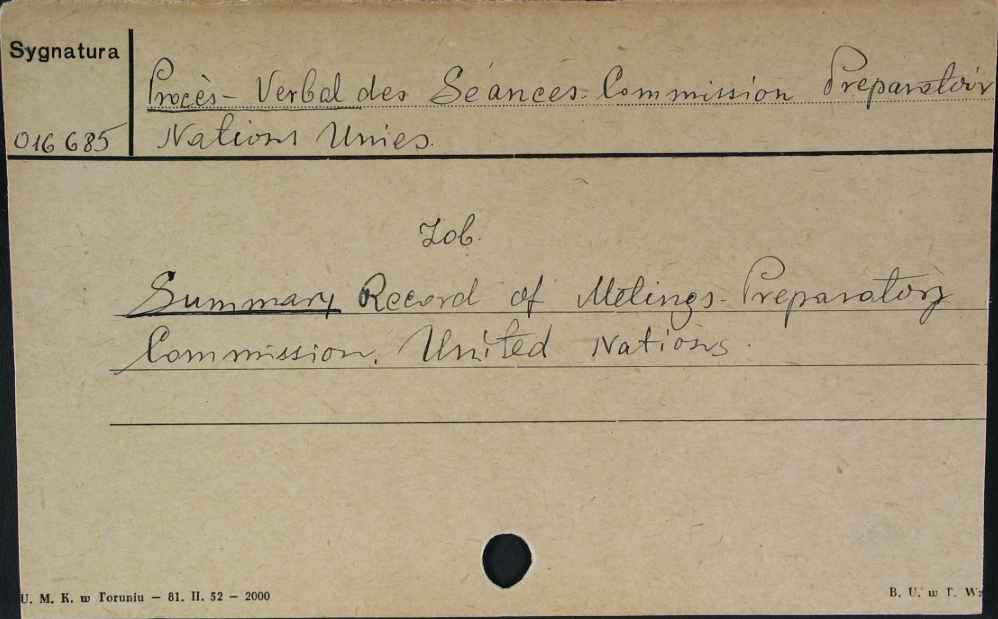 Sygnatura
Procès-Verbal des Séances. Commission Preparatoir
016685 Nations Unies.
Zob.
Summary Record of Metings. Preparatory
Commission. United Nations.
U. M. K. w Toruniu — 81. II. 52 — 2000
B. U. w T. Wz